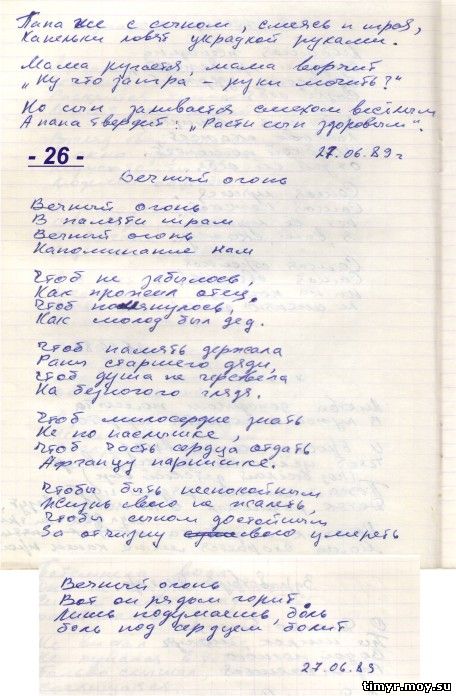 Папа же с сыном, смеясь и играя,
Капельки ловят украдкой руками.
Мама ругается, мама ворчит
„Ну что за игра – руки мочить?"
Но сын заливается смехом весёлым
А папа твердит: „Расти сын здоровым".
27.06.89 г
- 26 -
Вечный огонь
Вечный огонь
В памяти шрам
Вечный огонь
Напоминание нам
Чтоб не забылось,
Как прожил отец.
Чтоб помянулось,
Как молод был дед.
Чтоб память держала
Раны старшего дяди,
Чтоб душа не черствела
На безногого глядя.
Чтоб милосердие знать
Не по наслышке,
Чтоб часть сердца отдать
Афганцу парнишке.
Чтобы быть неспокойным
Жизнь свою не жалеть,
Чтобы сыном достойным
За отчизну свою умереть
Вечный огонь
Вот он рядом горит.
Лишь подумаешь, боль
боль под сердцем болит
27.06.89
timyr.moy.su